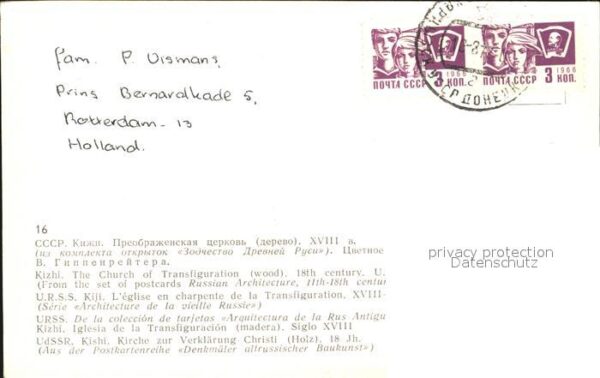 fam. P. Vismans,
Prins Bernardkade 5,
Rotterdam - 13
Holland.
1966
3 КОП.
ПОЧТА СССР
1966
3 КОП.
ПОЧТА СССР
ДОНЕЦК
16
СССР. Кижи. Преображенская церковь (дерево). XVIII в.
(из комплекта открыток «Зодчество Древней Руси»). Цветное
В. Гиппенрейтера.
Kizhi. The Church of Transfiguration (wood). 18th century. U.
(From the set of postcards Russian Architecture, 11th-18th centur
U.R.S.S. Kiji. L'église en charpente de la Transfiguration. XVIII-
(Série «Architecture de la vieille Russie»)
URSS. De la colección de tarjetas «Arquitectura de la Rus Antigu
Kizhi. Iglesia de la Transfiguración (madera). Siglo XVIII
UdSSR. Kishi. Kirche zur Verklärung Christi (Holz). 18 Jh.
(Aus der Postkartenreihe «Denkmäler altrussischer Baukunst»)
privacy protection
Datenschutz